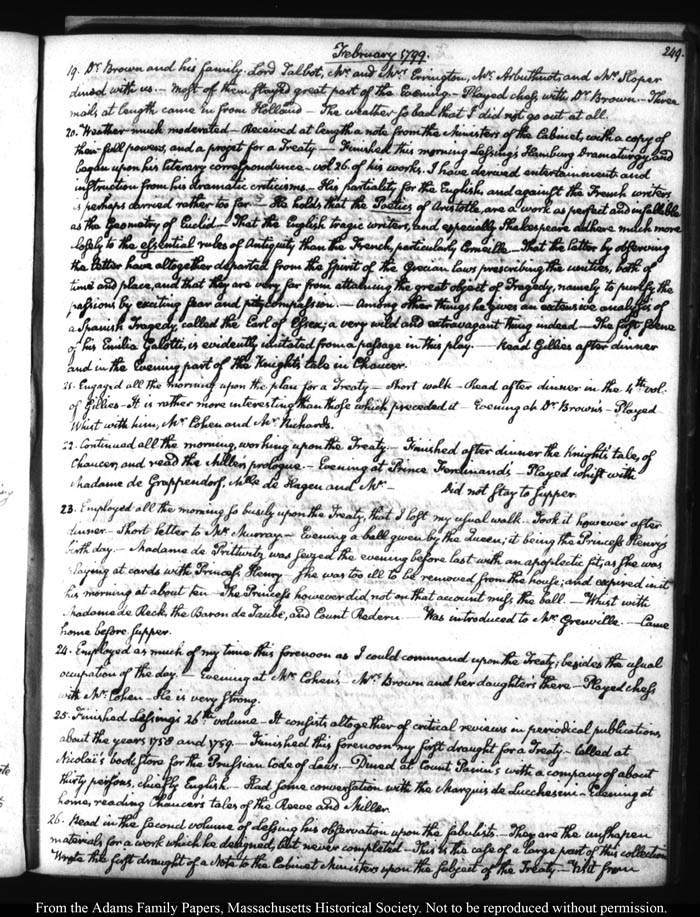 February 1799.
249.
19. Dr. Brown and his family. Lord Talbot, Mr. and Mrs. Errington, Mr. Arbuthnot, and Mr. Sloper
dined with us. — Most of them stayed great part of the Evening. — Played chess with Dr. Brown. — Three
mails at length came in from Holland — The weather so bad that I did not go out at all.
20. Weather much moderated — Received at length a note from the Ministers of the Cabinet, with a copy of
their full powers, and a projet for a Treaty — Finished this morning Lessing's Hamburg Dramaturgy, and
began upon his literary correspondence — vol. 26. of his works. I have derived entertainment and
instruction from his dramatic criticisms — His partiality for the English and against the French writers,
is perhaps carried rather too far — He holds that the Poetics of Aristotle, are a work as perfect and infallible
as the Geometry of Euclid — That the English tragic writers, and especially Shakespeare adhere much more
closely to the essential rules of Antiquity than the French, particularly Corneille. — That the latter by observing
the letter have altogether departed from the Spirit of the Grecian laws prescribing the unities, both of
time and place, and that they are very far from attaining the great object of Tragedy, namely to purify the
passions by exciting fear and compassion. — Among other things he gives an extensive analysis of
a Spanish Tragedy, called the Earl of Essex; a very wild and extravagant thing indeed — The first scene
of his Emilia Galotti, is evidently imitated from a passage in this play. — Read Gillies after dinner
and in the Evening part of the Knight's tale in Chaucer.
21. Engaged all the morning upon the plan for a Treaty — Short walk — Read after dinner in the 4th. vol.
of Gillies — It is rather more interesting than those which preceded it — Evening at Dr. Brown's — Played
Whist with him, Mr. Cohen and Mr. Richards.
22. Continued all the morning, working upon the Treaty — Finished after dinner the Knight's tale, of
Chaucer, and read the Miller's prologue — Evening at Prince Ferdinand's — Played whist with
Madame de Grappendorf, Mlle. de Hagen and Mr. — Did not stay to supper.
23. Employed all the morning so busily upon the Treaty, that I lost my usual walk. Took it however after
dinner — Short letter to Mr. Murray — Evening a ball given by the Queen; it being the Princess Henry's
birth day. — Madame de Prittwitz was seized the evening before last with an apoplectic fit, as she was
playing at cards with Princess Henry she was too ill to be removed from the house; and expired in it
this morning at about ten — The Princess however did not on that account miss the ball. — Whist with
Madame de Reck, the Baron de Taube, and Count Redern — Was introduced to Mr. Grenville. — Came
home before supper.
24. Employed as much of my time this forenoon as I could command upon the Treaty; besides the usual
occupation of the day. — Evening at Mr. Cohen's — Mrs. Brown and her daughters there — Played chess
with Mr. Cohen — He is very strong.
25. Finished Lessing's 26th. volume — It consists altogether of critical reviews in periodical publications
about the years 1758 and 1759. — Finished this forenoon my first draught for a Treaty — Called at
Nicolai's book store for the Prussian Code of Laws. — Dined at Count Panin's with a company of about
thirty persons, chiefly English — Had some conversation with the Marquis de Lucchesini — Evening at
home, reading Chaucer's tales of the Reeve and Miller.
26. Read in the second volume of Lessing his observation upon the fabulists — They are the unshapen
materials for a work which he designed, but never completed — This is the case of a large part of this collection
Wrote the first draught of a Note to the Cabinet Ministers upon the subject of the Treaty — Visit from
From the Adams Family Papers, Massachusetts Historical Society. Not to be reproduced without permission.